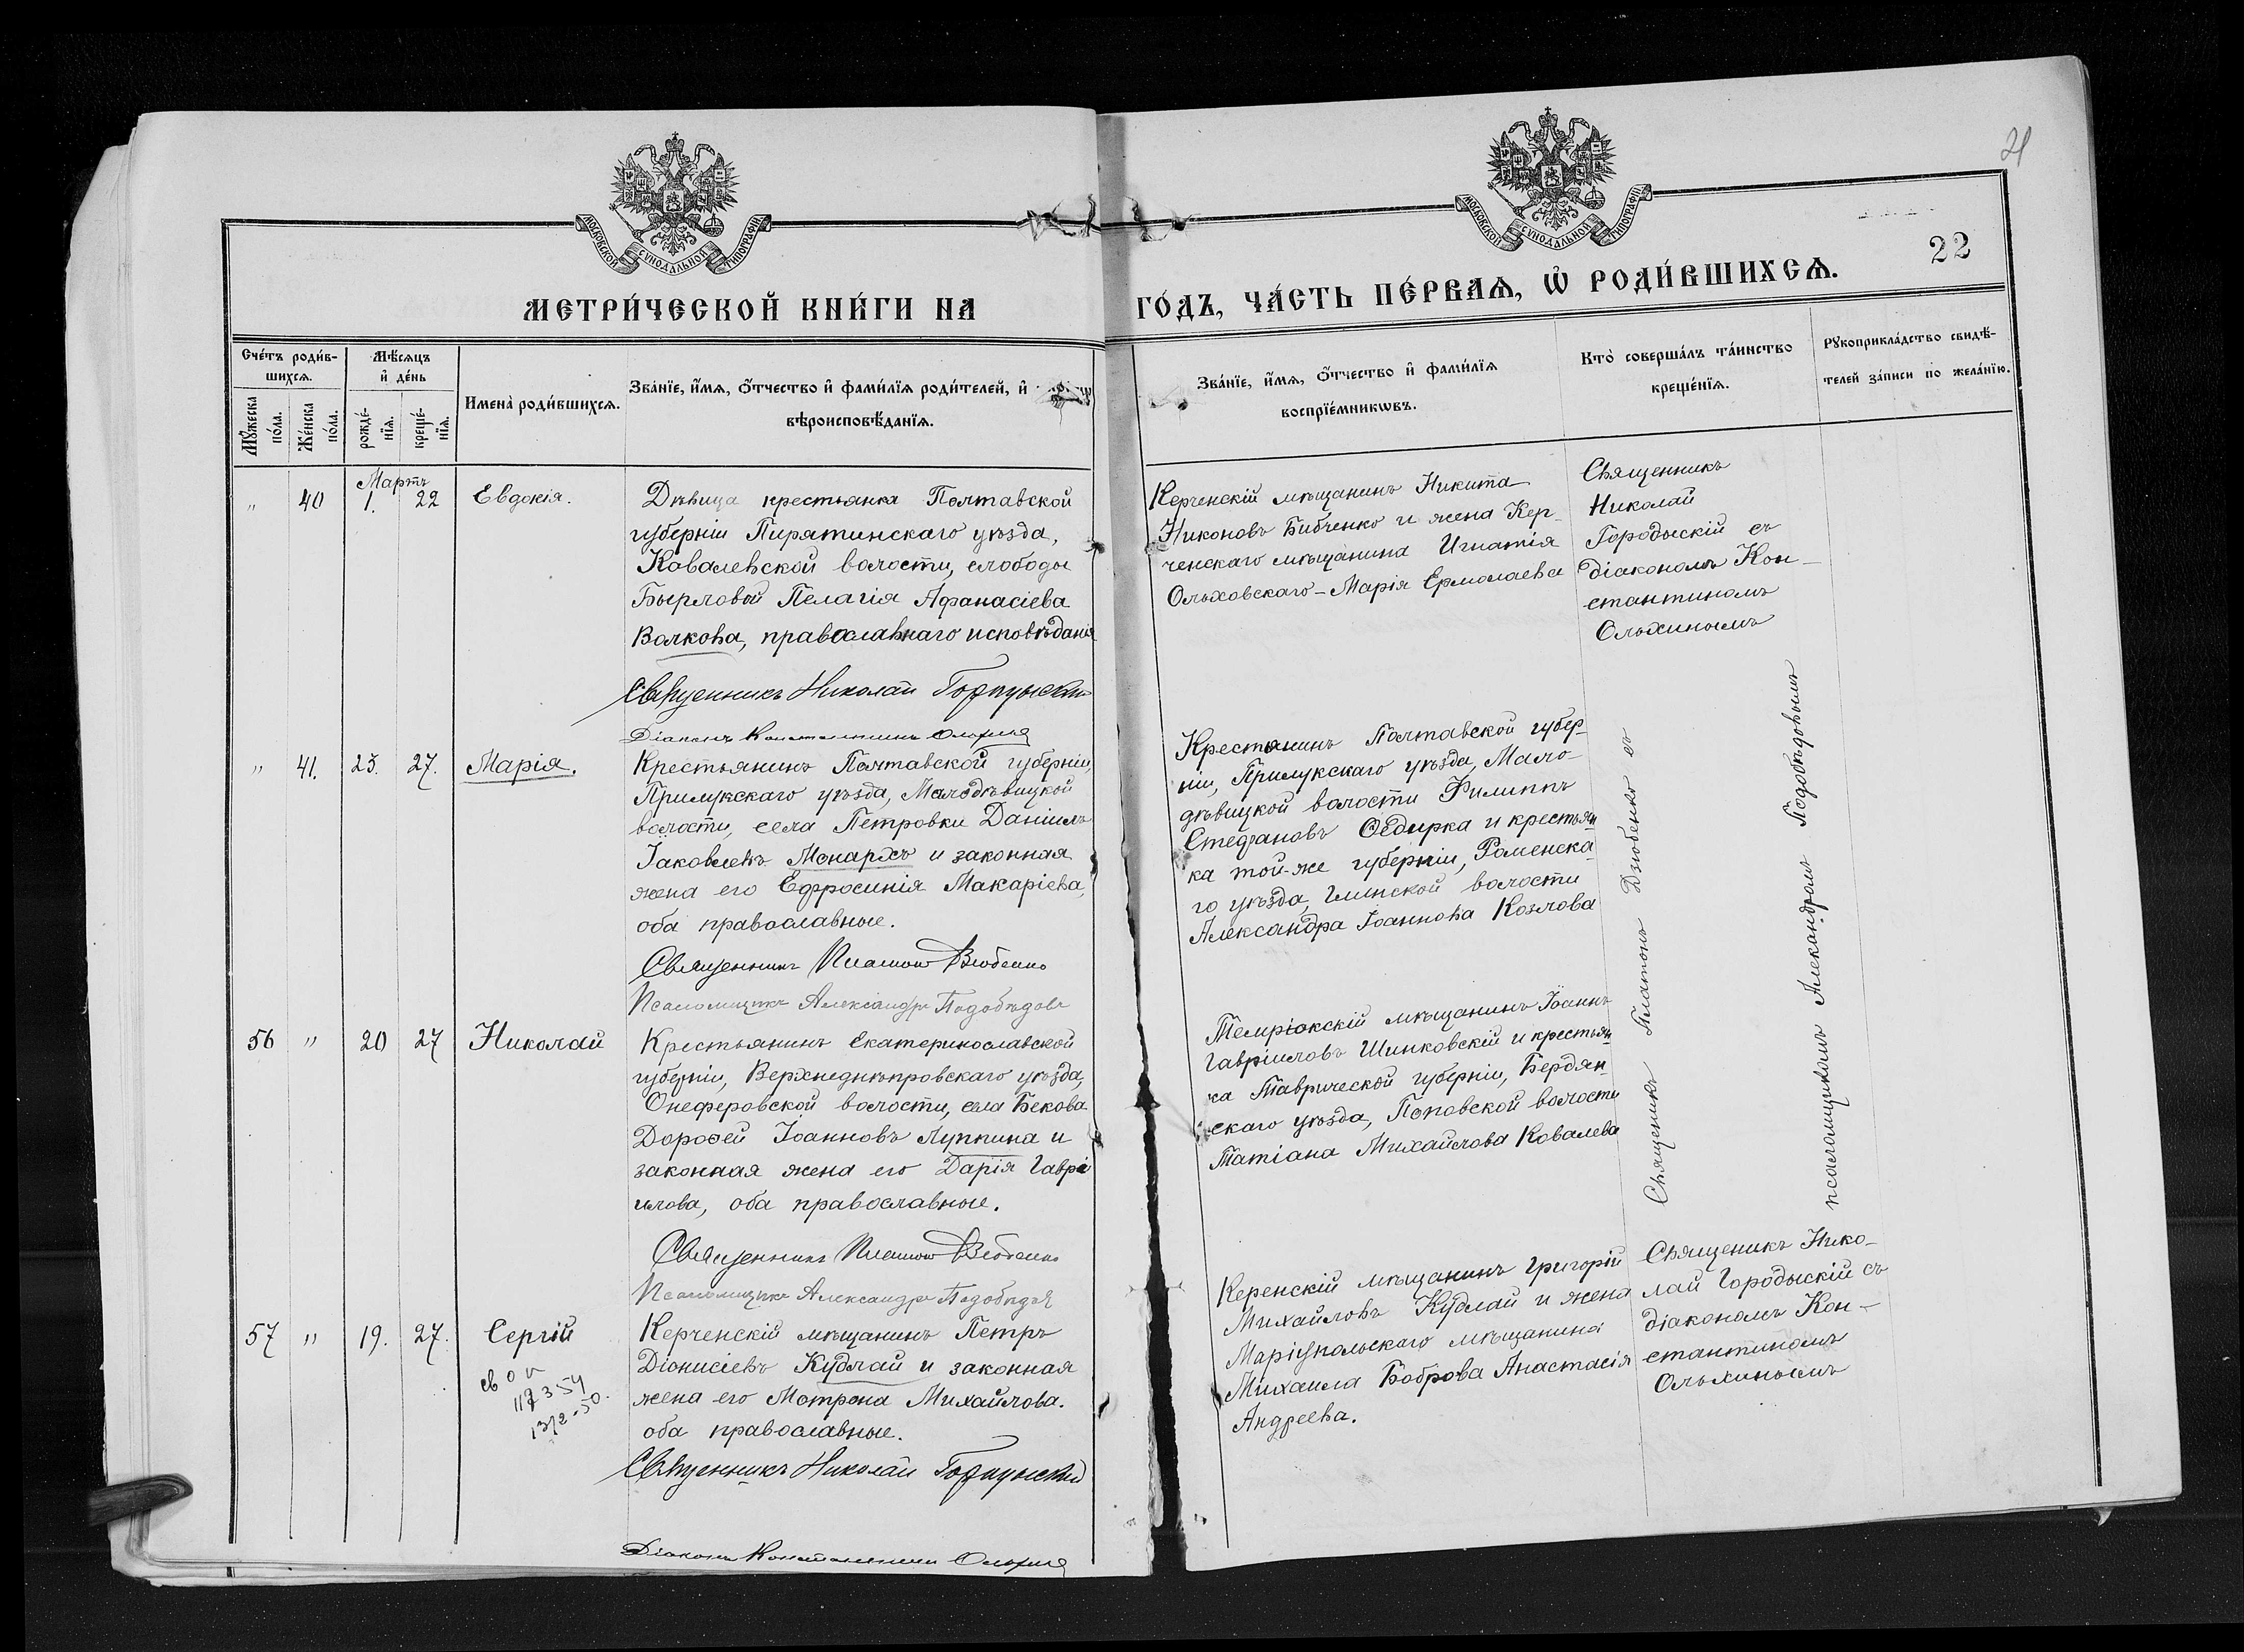 21
МОСКОВСКОЙ СУНОДАЛЬНОЙ ТИПОГРАФІИ
МОСКОВСКОЙ СУНОДАЛЬНОЙ ТИПОГРАФІИ
22
МЕТРИ́ЧЕСКОЙ КНИ́ГИ НА
ГО́ДЪ, ЧА́СТЬ ПЕ́РВАѦ, Ѡ҆ РОДИ́ВШИХСѦ.
Сче́тъ роди́в-
шихсѧ.
Мꙋ́жеска по́ла.
Же́нска по́ла.
Мѣ́сѧцъ
и҆ де́нь
рожде́-
нїѧ.
креще́-
нїѧ.
Имена̀ роди́вшихсѧ.
Зва́нїе, и҆́мѧ, ѻ҆́тчество и҆ фами́лїѧ роди́телей, и҆
вѣроисповѣ́данїѧ.
Зва́нїе, и҆́мѧ, ѻ҆́тчество и҆ фами́лїѧ
воспрїе́мникѡвъ.
Кто̀ соверша́лъ та́инство
креще́нїѧ.
Рꙋкоприкла́дство свидѣ́-
телей за́писи по жела́нїю.
Мартъ
" 40 1. 22 Евдокія.
Дѣвица крестьянка Полтавской
губерніи Пирятинскаго уѣзда,
Ковалевской волости, слободы
Бырловой Пелагія Афанасіева
Волкова, православнаго исповѣданія
Священникъ Николай Городыскій
Діаконъ Константинъ Ольхинъ
Керченскій мѣщанинъ Никита
Никоновъ Бибченко и жена Кер-
ченскаго мѣщанина Игнатія
Ольховскаго - Марія Ермолаева
Священникъ
Николай
Городыскій съ
діакономъ Кон-
стантиномъ
Ольхинымъ
" 41. 25. 27. Марія.
Крестьянинъ Полтавской губерніи,
Прилукскаго уѣзда, Малодѣвицкой
волости, села Петровки Даніилъ
Іаковлевъ Монархъ и законная
жена его Ефросинія Макаріева,
оба православные.
Священникъ Платонъ Дзюбенко
Псаломщикъ Александръ Подобѣдовъ
Крестьянинъ Полтавской губер-
ніи, Прилукскаго уѣзда, Мало-
дѣвицкой волости Филиппъ
Стефановъ Ѳедирка и крестьян
ка той-же губерніи, Роменска-
го уѣзда, Глинской волости
Александра Іоаннова Козлова
Священникъ Платонъ Дзюбенко съ
псаломщикомъ Александромъ Подобѣдовымъ
56 " 20 27 Николай
Крестьянинъ Екатеринославской
губерніи, Верхнеднѣпровскаго уѣзда,
Онеферовской волости, села Бекова
Дороѳей Іоанновъ Луппина и
законная жена его Дарія Гаврі
илова, оба православные.
Священникъ Платонъ Дзюбенко
Псаломщикъ Александръ Подобѣдовъ
Темрюкскій мѣщанинъ Іоаннъ
Гавріиловъ Шинковскій и крестьян
ка Таврической губерніи, Бердян-
скаго уѣзда, Поповской волости
Татіана Михайлова Ковалева
57 " 19. 27. Сергій
Керченскій мѣщанинъ Петръ
Діонисіевъ Кудлай и законная
жена его Мотрона Михайлова.
оба православные.
Священникъ Николай Городыскій
Діаконъ Константинъ Ольхинъ
Керенскій мѣщанинъ Григорій
Михайловъ Кудлай и жена
Маріупольскаго мѣщанина
Михаила Боброва Анастасія
Андреева.
Священикъ Нико-
лай Городыскій съ
діакономъ Кон-
стантиномъ
Ольхинымъ